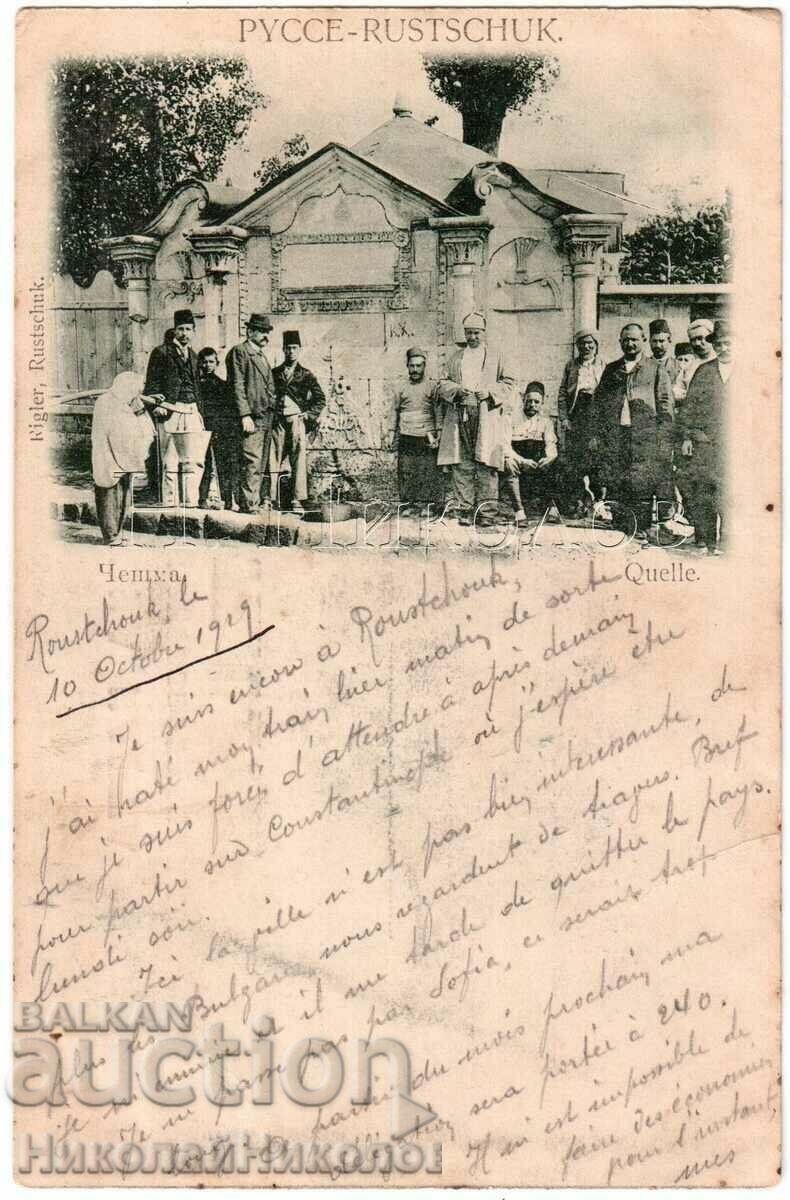 РУССЕ-RUSTSCHUK.
Rigler, Rustschuk.
К.К.
Н. Николов
Чешма.
Quelle.
Roustchouk, le
10 Octobre 1919
Je suis encore à Roustchouk,
j'ai raté mon train hier matin de sorte
que je suis forcé d'attendre à après demain
pour partir sur Constantinople où j'espère être
lundi soir.
Ici la ville n'est pas bien intéressante, de
plus les Bulgares nous regardent de travers. Bref
je m'ennuie et il me tarde de quitter le pays.
Je ne passe pas par Sofia, ce serait trop
long. A partir du mois prochain ma
délégation sera portée à 240.
Il m'est impossible de
faire des économies
pour l'instant,
mes
BALKAN
auction
НиколайНиколов